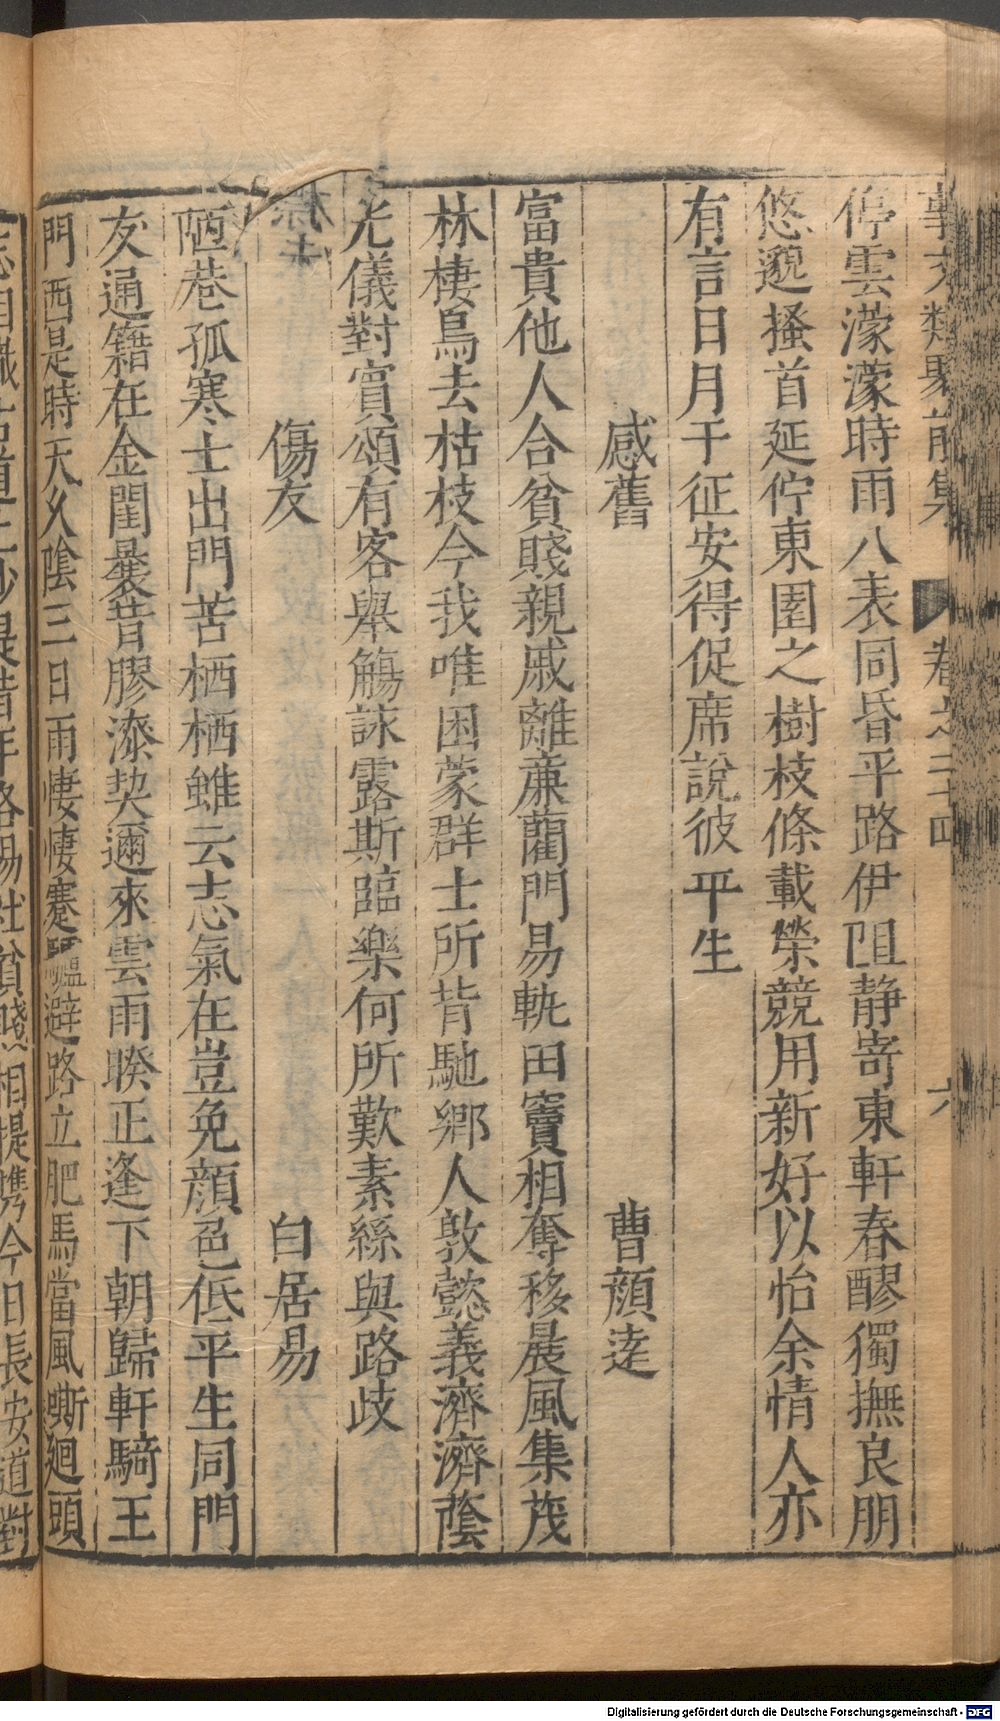 事文類聚前集 卷之二十四 六
停雲濛濛時雨八表同昏平路伊阻静寄東軒春醪獨撫良朋
悠邈搔首延佇東園之樹枝條載榮競用新好以怡余情人亦
有言日月于征安得促席說彼平生
感舊 曹顏逹
富貴他人合貧賤親戚離亷藺門易軌田竇相奪移晨風集茂
林棲鳥去枯枝今我唯困蒙群士所背馳鄉人敦懿義濟濟蔭
光儀對賓頌有客舉觴詠露斯臨樂何所歎素絲與路歧
傷友 白居易
陋巷孤寒士出門苦栖栖雖云志氣在豈免顔色低平生同門
友通籍在金閨曩昔膠漆契邇來雲雨睽正逢下朝歸軒騎王
門西是時天久陰三日雨悽悽蹇驢避路立肥馬當風嘶廻頭
忘相識占道上沙堤昔年洛陽社貧賤相提携今日長安道對
Digitalisierung gefördert durch die Deutsche Forschungsgemeinschaft - DFG